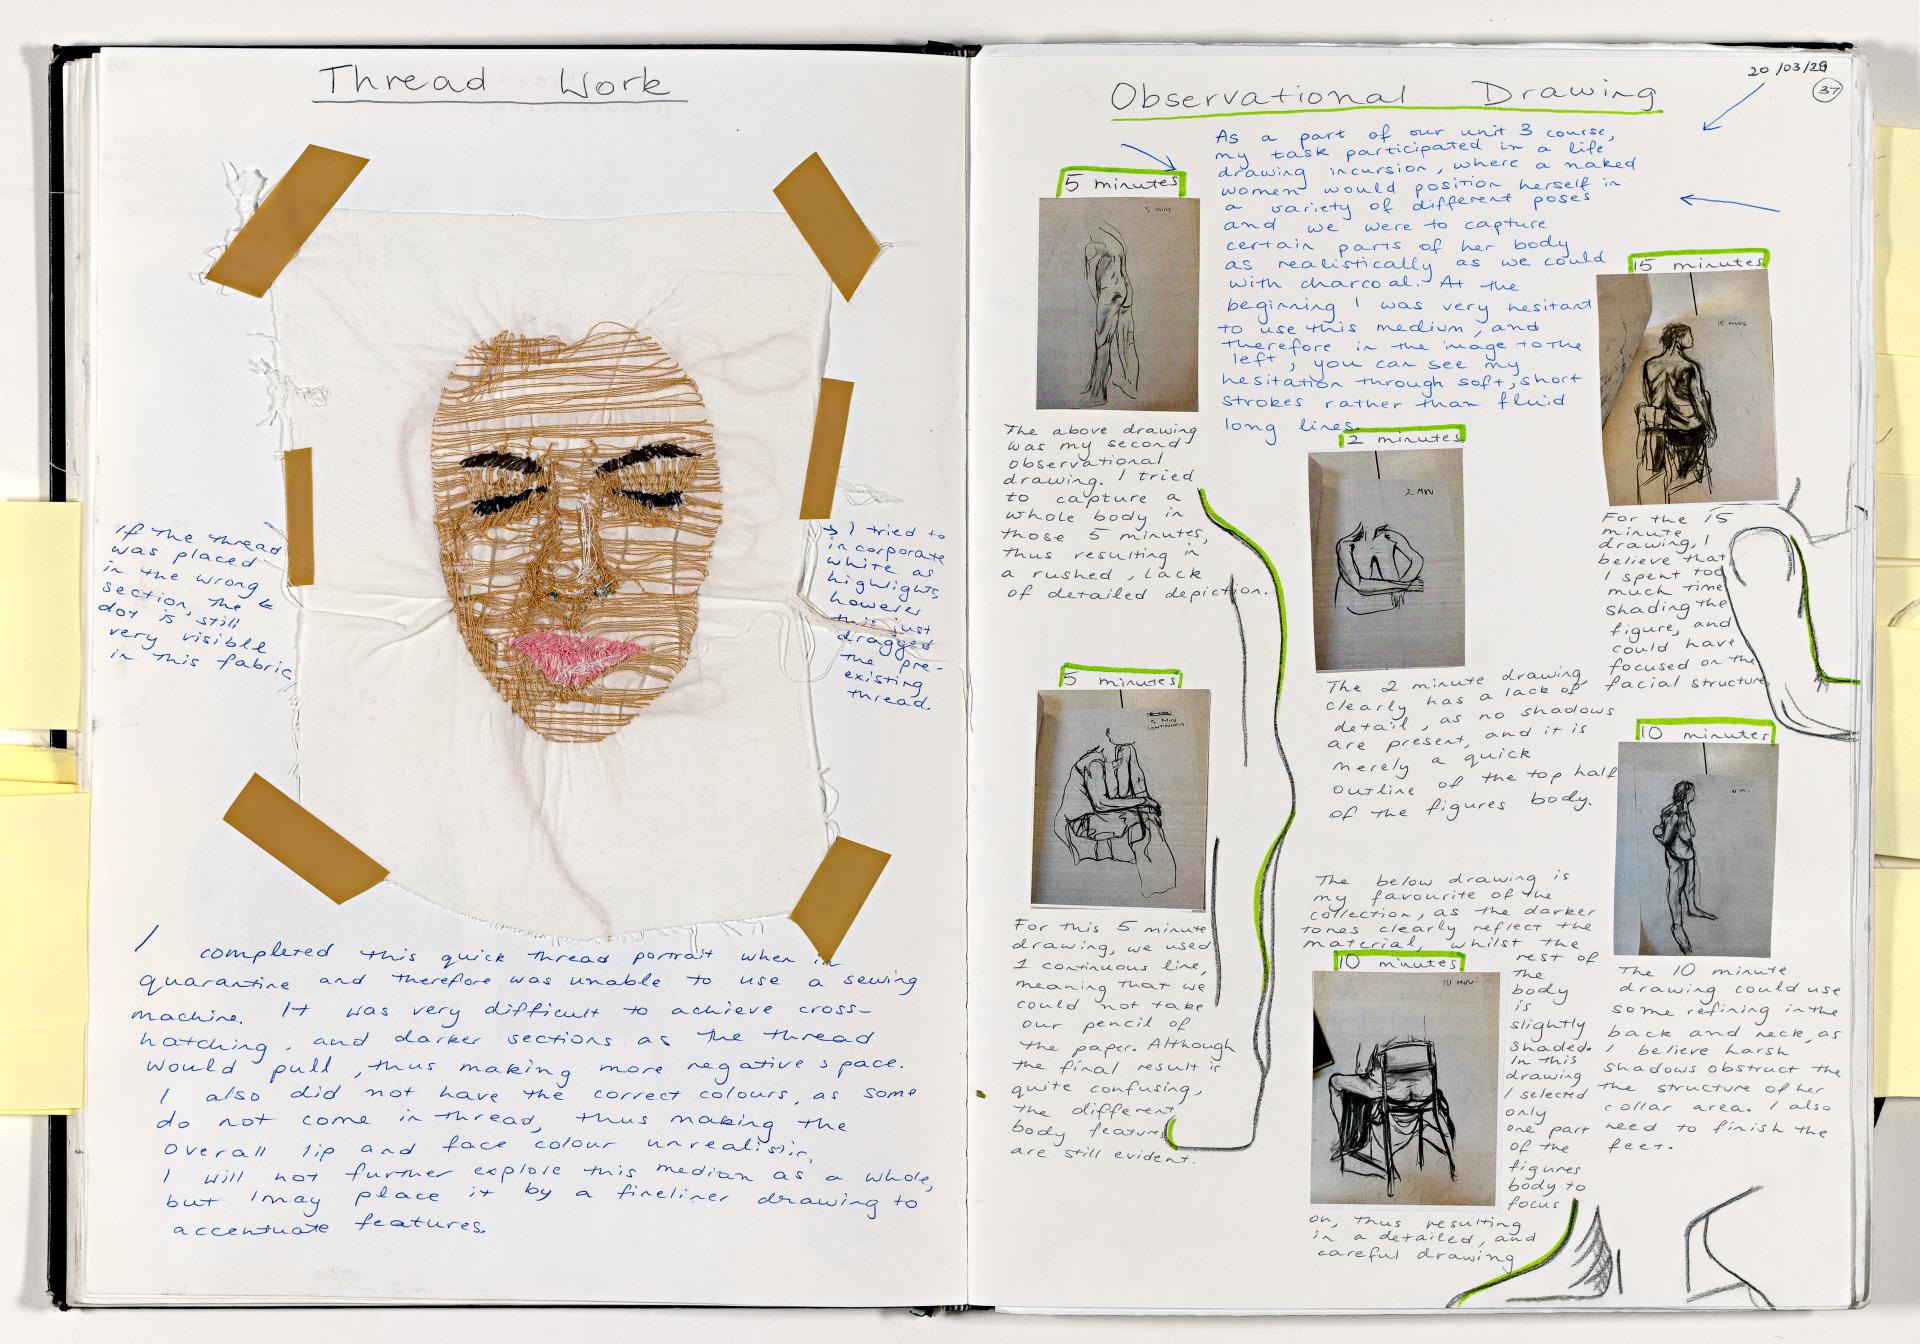 Thread Work
If the thread
was placed
in the wrong
section, the
dot is still
very visible
in this fabric
I tried to
incorporate
white as
highlights,
however
this just
dragged
the pre-
existing
thread.
I completed this quick thread portrait when in
quarantine and therefore was unable to use a sewing
machine. It was very difficult to achieve cross-
hatching, and darker sections as the thread
would pull, thus making more negative space.
I also did not have the correct colours, as some
do not come in thread, thus making the
overall lip and face colour unrealistic.
I will not further explore this median as a whole,
but I may place it by a fineliner drawing to
accentuate features.
20/03/20
37
Observational Drawing
As a part of our unit 3 course,
my task participated in a life
drawing incursion, where a naked
women would position herself in
a variety of different poses
and we were to capture
certain parts of her body
as realistically as we could
with charcoal. At the
beginning I was very hesitant
to use this medium, and
therefore in the image to the
left, you can see my
hesitation through soft, short
strokes rather than fluid
long lines.
5 minutes
5 MINS
The above drawing
was my second
observational
drawing. I tried
to capture a
whole body in
those 5 minutes,
thus resulting in
a rushed, lack
of detailed depiction.
5 minutes
5 MIN
CONTINUOUS
For this 5 minute
drawing, we used
1 continuous line,
meaning that we
could not take
our pencil of
the paper. Although
the final result is
quite confusing,
the different
body features
are still evident.
2 minutes
2 MIN
The 2 minute drawing
clearly has a lack of
detail, as no shadows
are present, and it is
merely a quick
outline of the top half
of the figures body.
The below drawing is
my favourite of the
collection, as the darker
tones clearly reflect the
material, whilst the
rest of
the
body
is
slightly
shaded.
In this
drawing
I selected
only
one part
of the
figures
body to
focus
on, thus resulting
in a detailed, and
careful drawing
10 minutes
10 MIN
15 minutes
15 MINS
For the 15
minute
drawing, I
believe that
I spent too
much time
shading the
figure, and
could have
focused on the
facial structure
10 minutes
The 10 minute
drawing could use
some refining in the
back and neck, as
I believe harsh
shadows obstruct the
the structure of her
collar area. I also
need to finish the
feet.